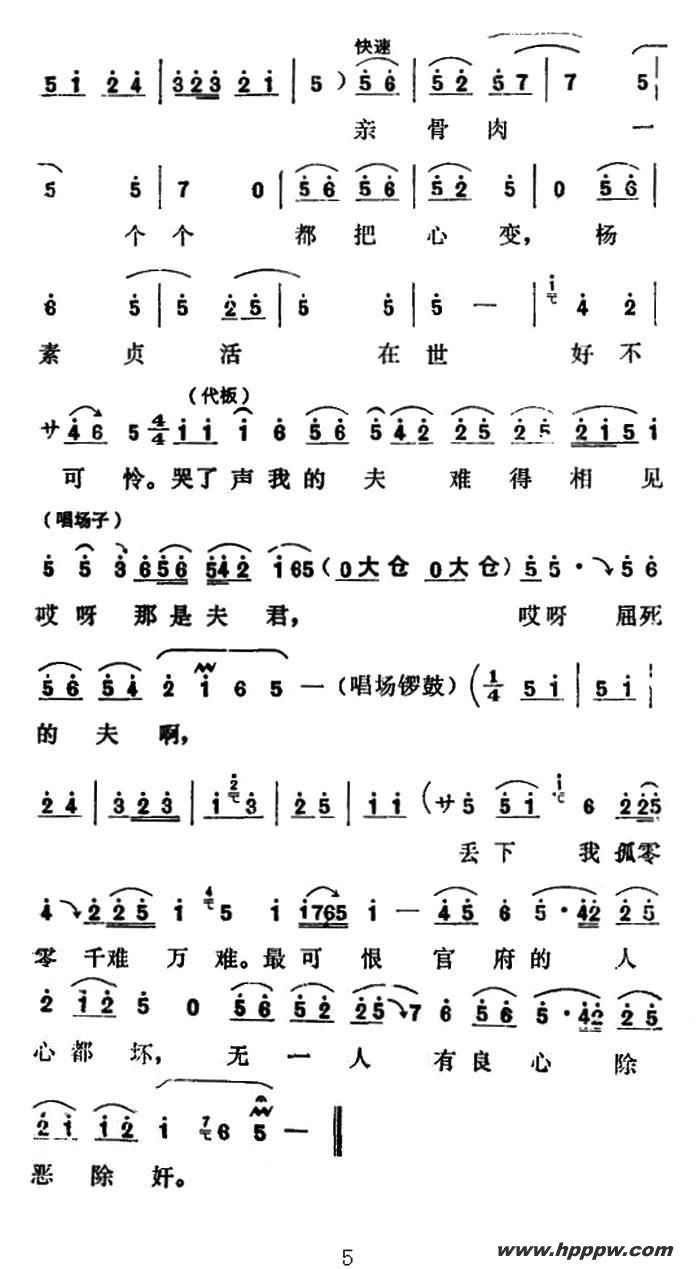 快速
5 i 2 4 | 3 2 3 2 i | 5 ) 5 6 | 5 2 5 7 | 7 5 |
亲 骨 肉 一
5 5 | 7 0 | 5 6 5 6 | 5 2 5 | 0 5 6 |
个 个 都 把 心 变， 杨
6 5 | 5 2 5 | 5 5 | 5 — | i 4 2 |
素 贞 活 在 世 好 不
（代板）
サ 4 6 5 4/4 i i i 6 5 6 5 4 2 2 5 2 5 2 i 5 i
可 怜。哭 了 声 我 的 夫 难 得 相 见
（唱场子）
5 5 3 6 5 6 5 4 2 i 6 5 ( 0 大 仓 0 大 仓 ) 5 5 · 5 6
哎 呀 那 是 夫 君， 哎 呀 屈 死
5 6 5 4 2 i 6 5 — （唱场锣鼓） ( 1/4 5 i | 5 i |
的 夫 啊，
2 4 | 3 2 3 | i 2 3 | 2 5 | i i ( サ 5 5 i i 6 2 2 5
丢 下 我 孤 零
4 2 2 5 i 4 5 i i 7 6 5 i — 4 5 6 5 · 4 2 2 5
零 千 难 万 难。最 可 恨 官 府 的 人
2 i 2 5 0 5 6 5 2 2 5 7 6 5 6 5 · 4 2 2 5
心 都 坏， 无 一 人 有 良 心 除
2 i i 2 i 7 6 5 —
恶 除 奸。
5
www.hpppw.com